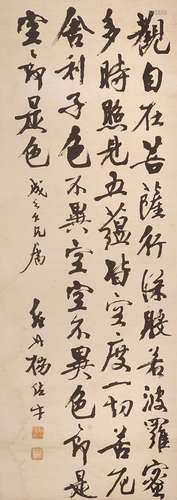 觀自在菩薩行深般若波羅蜜
多時照見五蘊皆空度一切苦厄
舍利子色不異空空不異色〻即是
空〻即是色
成之仁兄屬
楊